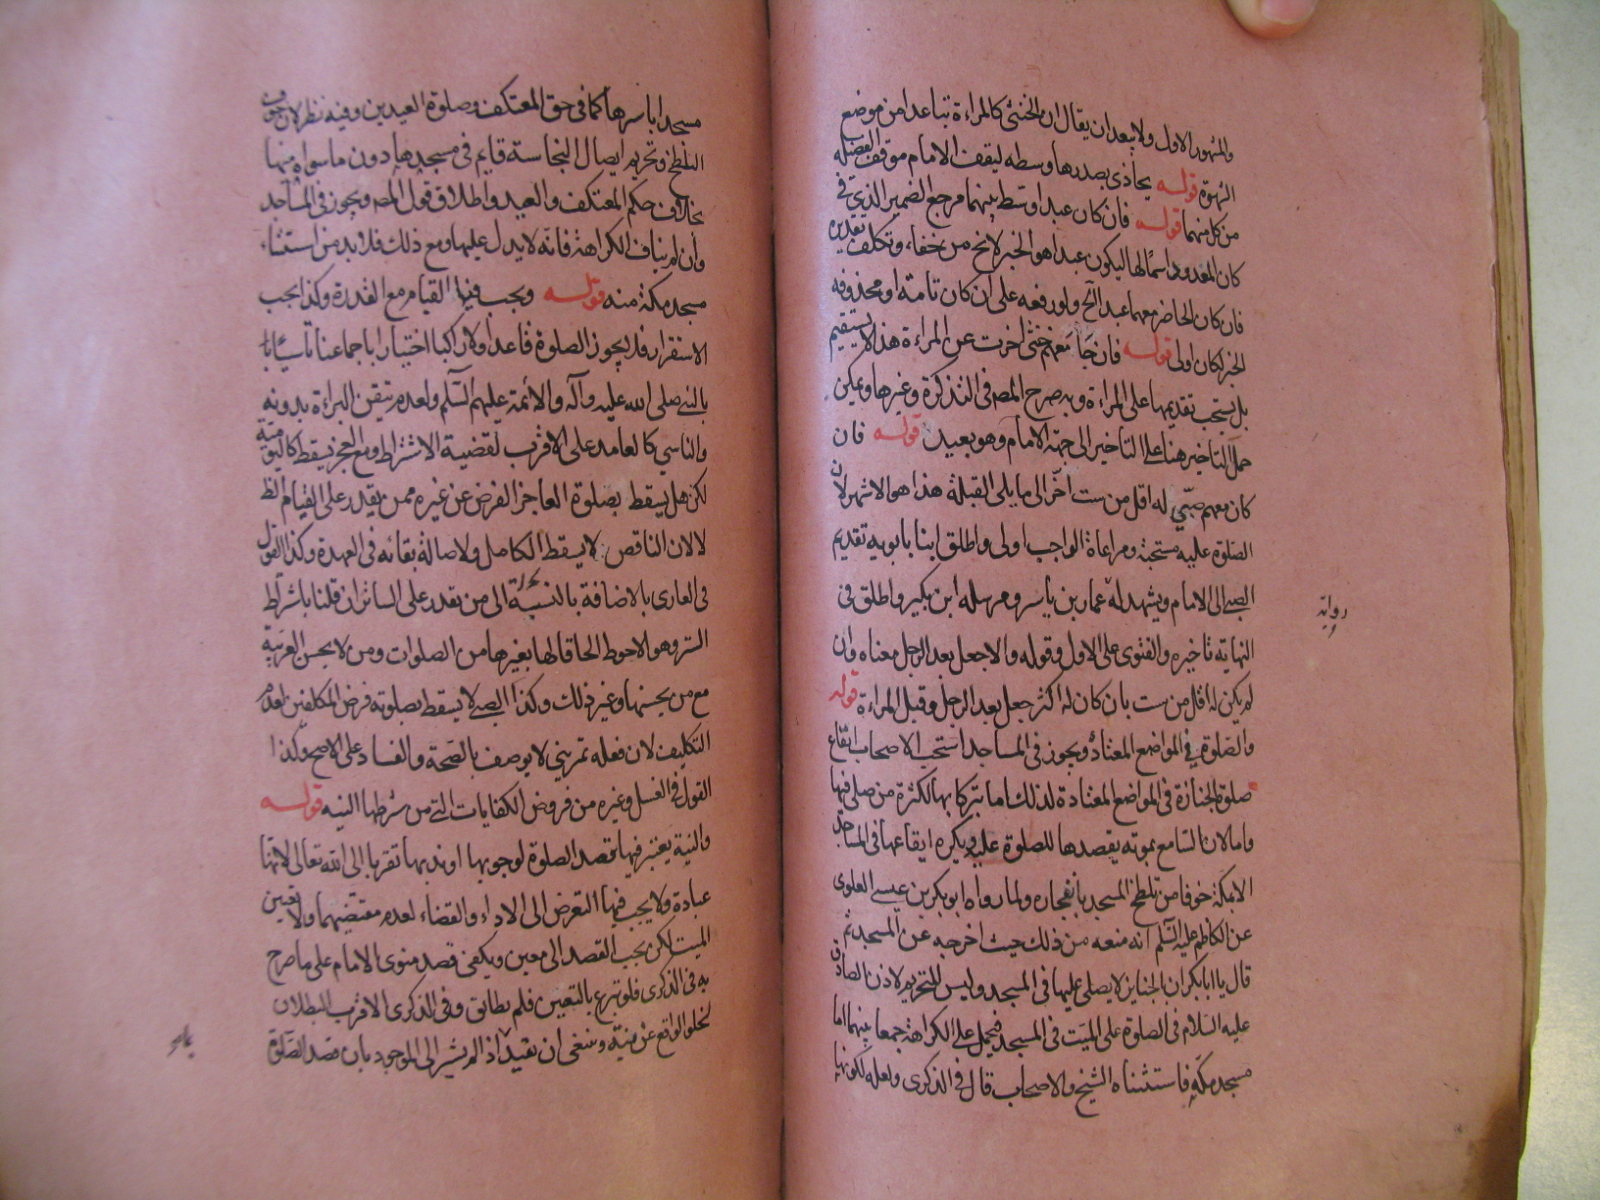 والمشهور الاول ولا يبعد ان يقال ان الخنثى كالمراءة تباعدا من موضع
الشهوة قوله يحاذى بصدرها وسطه ليقف الامام موقف الفضيلة
من كل منهما قوله فان كان عبدا وسط بينهما مرجع الضمير الذي في
كان المعدود اسمًا لها ليكون عبدا هو الخبر لا يخ من خفاء وتكلف تقديره
فان كان الحاضر معهما عبد الخ ولو رفعه على ان كان تامة او محذوفه
الخبر لكان اولى قوله فان جامعهم خنثى اخرت عن المراءة هذا لا يستقيم
بل يستحب تقديمها على المراءة وبه صرح المص في التذكرة وغيرها ويمكن
حمل التاخير هنا على التاخير الى جهة الامام وهو بعيد قوله فان
كان معهم صبي له اقل من ست اخر الى ما يلى القبلة هذا هو الاشهر لان
الصلوة عليه مستحبة ومراعاة الواجب اولى واطلق ابنا بابويه تقديم
الصبي الى الامام ويشهد له عمار بن ياسر ومرسله ابن بكير واطلق في
النهاية تاخيره والفتوى على الاول وقوله والا جعل بعد الرجل معناه وان
لم يكن له اقل من ست بان كان له اكثر جعل بعد الرجل وقبل المراءة قوله
والصلوة في المواضع المعتادة ويجوز في المساجد استحب الاصحاب ايقاع
صلوة الجنازة في المواضع المعتادة لذلك اما تبركا بها لكثرة من صلى فيها
واما لان السامع بموته يقصدها للصلوة عليه ويكره ايقاعها في المساجد
الا بمكة خوفا من تلطخ المسجد بانفجاره ولما رواه ابو بكر بن عيسى العلوى
عن الكاظم عليه السلم انه منعه من ذلك حيث اخرجه عن المسجد ثم
قال يا ابا بكر ان الجنايز لا يصلى عليها في المسجد وليس للتحريم لاذن الصادق
عليه السلام في الصلوة على الميت في المسجد فيحمل على الكراهة جمعا بينهما اما
مسجد مكة فاستثناه الشيخ والاصحاب قال في الذكرى ولعله لكونها
رواية
مسجدا باسرها كما في حق المعتكف وصلوة العيدين وفيه نظر لان خوف
التلطخ وتحريم ايصال النجاسة قايم في مسجدها دون ما سواه منها
بخلاف حكم المعتكف والعيد واطلاق قول المص ويجوز في المساجد
وأن لم يناف الكراهة فانه لا يدل عليها ومع ذلك فلا بد من استثناء
مسجد مكة منه قوله ويجب فيها القيام مع القدرة وكذا يجب
الاستقرار فلا يجوز الصلوة قاعدا ولا راكبا اختيارا باجماعنا تاسيًا
بالنبي صلى الله عليه وآله والأئمة عليهم السلم ولعدم تيقن البراءة بدونه
والناسي كالعامد على الاقرب لقضية الاشتراط ومع العجز يسقط كاليومية
لكن هل يسقط بصلوة العاجز الفرض عن غيره ممن يقدر على القيام الظ
لا لان الناقص لا يسقط الكامل ولاصالة بقائه في العهدة وكذا القول
في العارى بالاضافة بالنسبة الى من يقدر على الساتر ان قلنا باشتراط
الستر وهو الاحوط الحاقا لها بغيرها من الصلوات ومن لا يحسن العربية
مع من يحسنها وغير ذلك وكذا الصبي لا يسقط بصلوته فرض المكلفين لعدم
التكليف لان فعله تمريني لا يوصف بالصحة والفساد على الاصح وكذا
القول في الغسل وغيره من فروض الكفايات التي من شرطها النيه قوله
والنية يعتبر فيها قصد الصلوة لوجوبها او ندبها تقربا الى الله تعالى لانها
عبادة ولا يجب فيها التعرض الى الاداء والقضاء لعدم مقتضيهما ولا تعيين
الميت لكن يجب القصد الى معين ويكفى قصد منوى الامام على ما صرح
به في الذكرى فلو تبرع بالتعيين فلم يطابق وفي الذكرى الاقرب البطلان
لخلو الواقع عن نية وينبغى ان يقيد اذا لم يشر الى الموجود بان قصد الصلوة